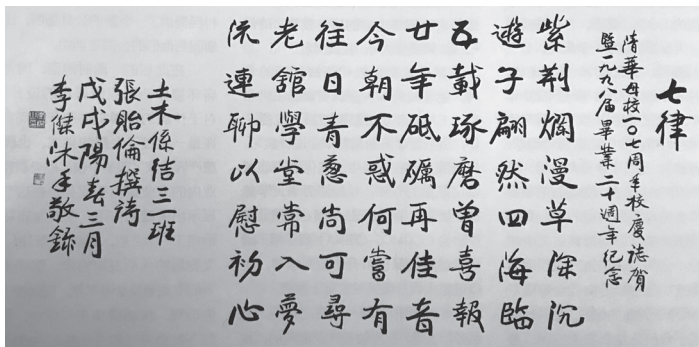 七律
清華母校一〇七周年校慶誌賀
暨一九九八届畢業二十週年紀念
紫荆爛漫草深沉
遊子翩然四海臨
五載琢磨曾喜報
廿年砥礪再佳音
今朝不惑何嘗有
往日青蔥尚可尋
老館學堂常入夢
流連聊以慰初心
土木係结三一班
張貽倫撰詩
戊戌陽春三月
李傑沐手敬錄